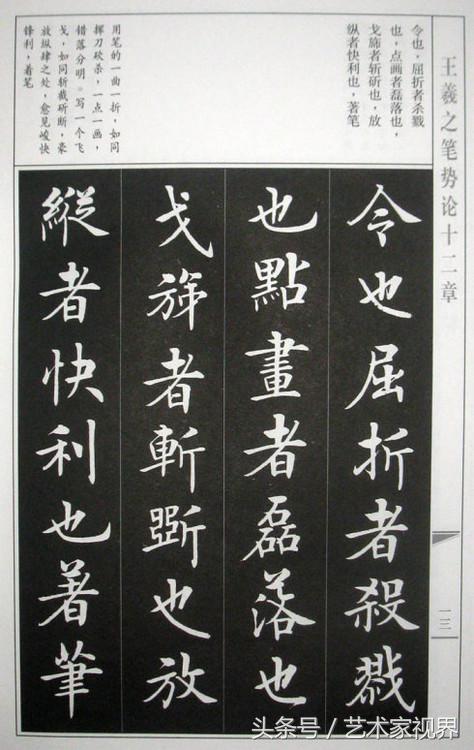 王羲之笔势论十二章
令也，屈折者杀戮
也，点画者磊落也，
戈旆者斩斫也，放
纵者快利也，著笔
用笔的一曲一折，如同
挥刀砍杀，一点一画，
错落分明。写一个飞
戈，如同斩截斫断，豪
放纵肆之处，愈见峻快
锋利，着笔
令也屈折者殺戮
也點畫者磊落也
戈旆者斬斲也放
縱者快利也著筆
一三
头条号/艺术家视界